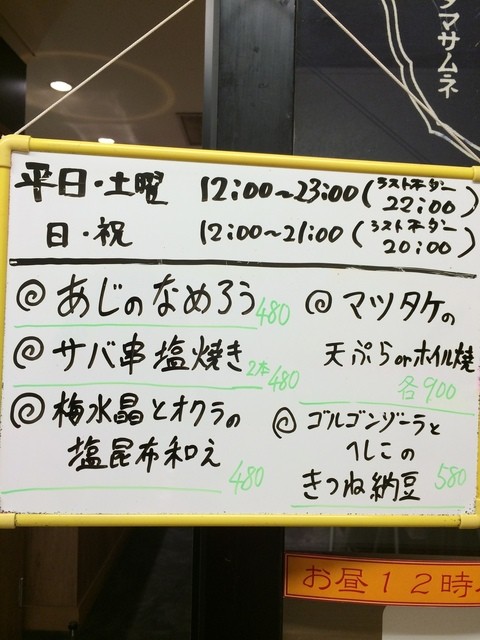 タマサムネ
平日・土曜 12:00~23:00(ラストオーダー 22:00)
日・祝 12:00~21:00(ラストオーダー 20:00)
あじのなめろう 480
サバ串塩焼き 2本480
梅水晶とオクラの
塩昆布和え 480
マツタケの
天ぷらorホイル焼
各900
ゴルゴンゾーラと
へしこの
きつね納豆 580
お昼12時